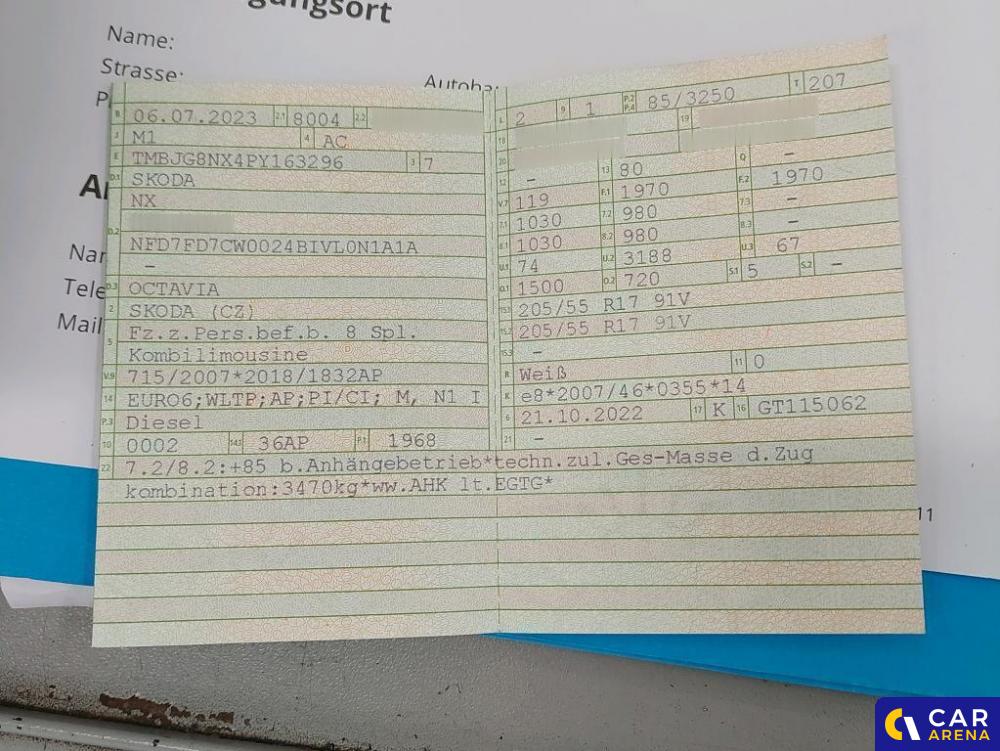 gangsort
Name:
Strasse:
P
Autoba
A
Nar
Tele
Mail
11
B 06.07.2023 2.1 8004 2.2
J M1 4 AC
E TMBJG8NX4PY163296 3 7
D.1 SKODA
NX
D.2 NFD7FD7CW0024BIVL0N1A1A
–
D.3 OCTAVIA
2 SKODA (CZ)
5 Fz.z.Pers.bef.b. 8 Spl.
Kombilimousine
V.9 715/2007*2018/1832AP
14 EURO6;WLTP;AP;PI/CI; M, N1 I
P.3 Diesel
10 0002 14.1 36AP P.1 1968
22 7.2/8.2:+85 b.Anhängebetrieb*techn.zul.Ges-Masse d.Zug
kombination:3470kg*ww.AHK lt.EGTG*
L 2 9 1 P.2 P.4 85/3250 T 207
18 19
20
12 – 13 80 Q –
V.7 119 F.1 1970 F.2 1970
7.1 1030 7.2 980 7.3 –
8.1 1030 8.2 980 8.3 –
U.1 74 U.2 3188 U.3 67
O.1 1500 O.2 720 S.1 5 S.2 –
15.1 205/55 R17 91V
15.2 205/55 R17 91V
15.3 –
R Weiß 11 0
K e8*2007/46*0355*14
6 21.10.2022 17 K 16 GT115062
21 –
CAR
ARENA